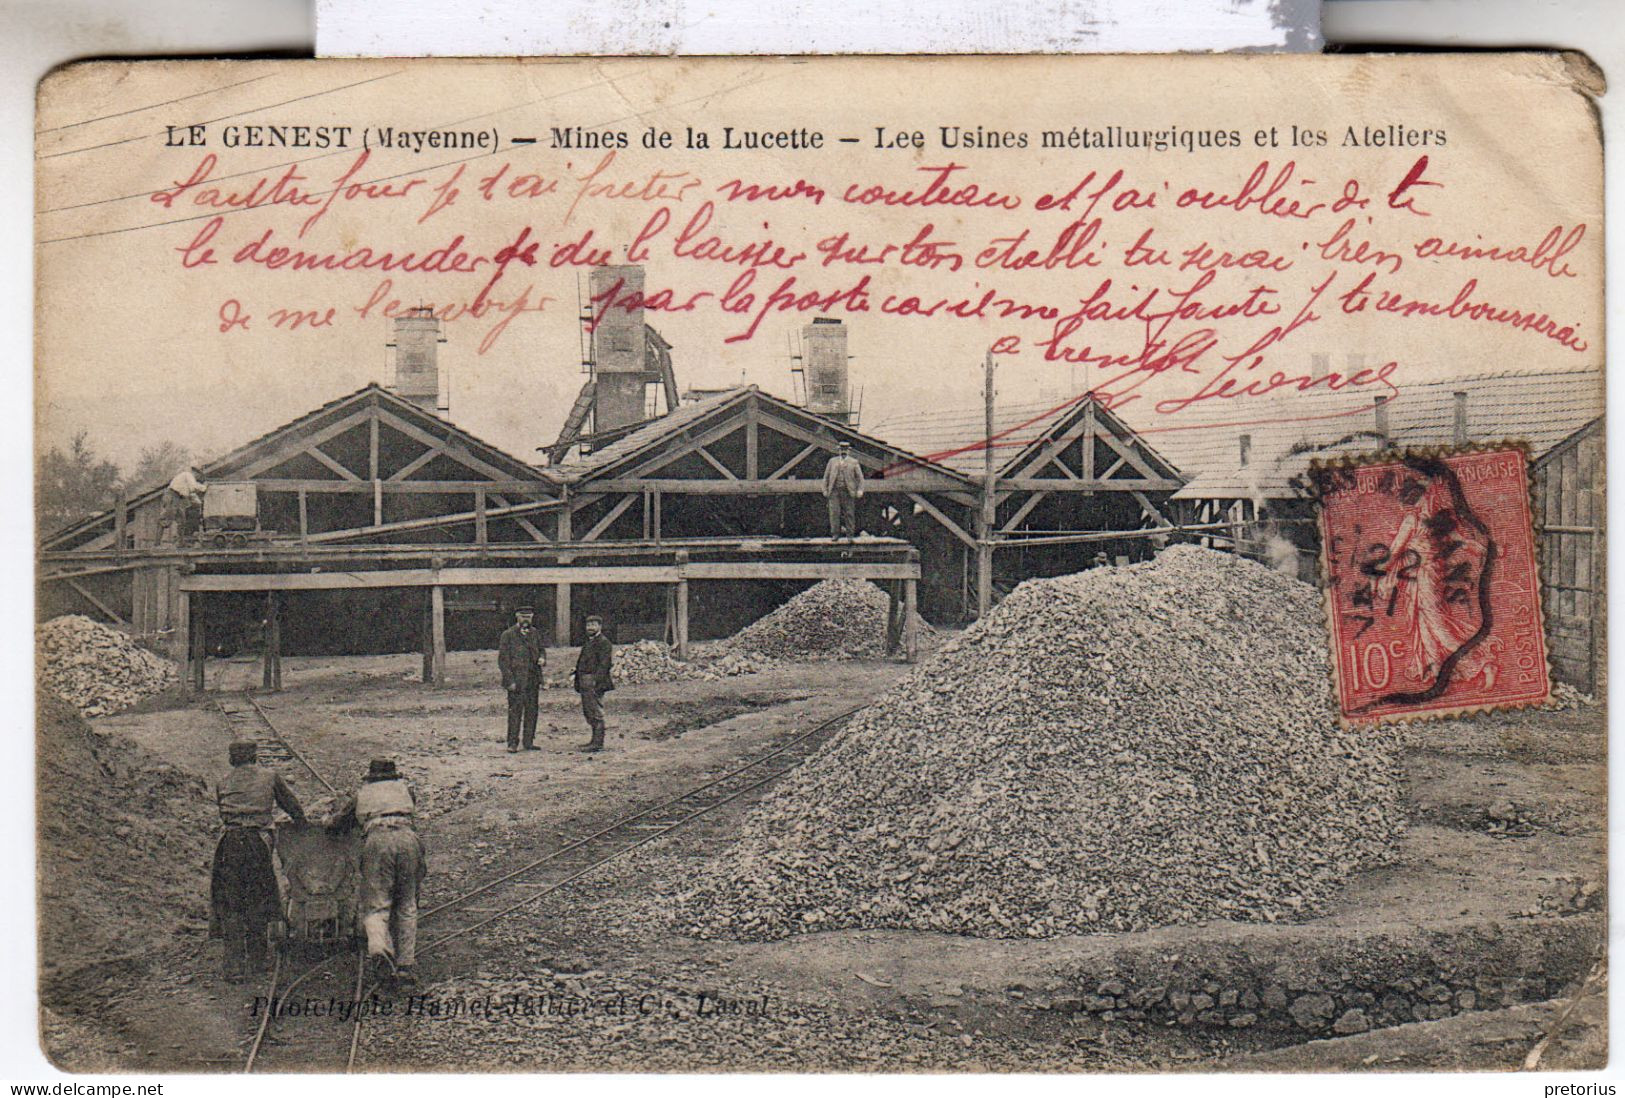 LE GENEST (Mayenne) — Mines de la Lucette — Lee Usines métallurgiques et les Ateliers
L'austre jour je t'ai preter mon couteau et j'ai oublier de te
le demander je du le laisser sur ton etabli tu serai bien aimable
de me l'envoyer par la poste car il me fait faute je te rembourserai
a bientot Léonce
REPUBLIQUE FRANÇAISE
MANS
22
10 c
POSTES
Phototypie Hamel-Jallier et Cie, Laval
pretorius